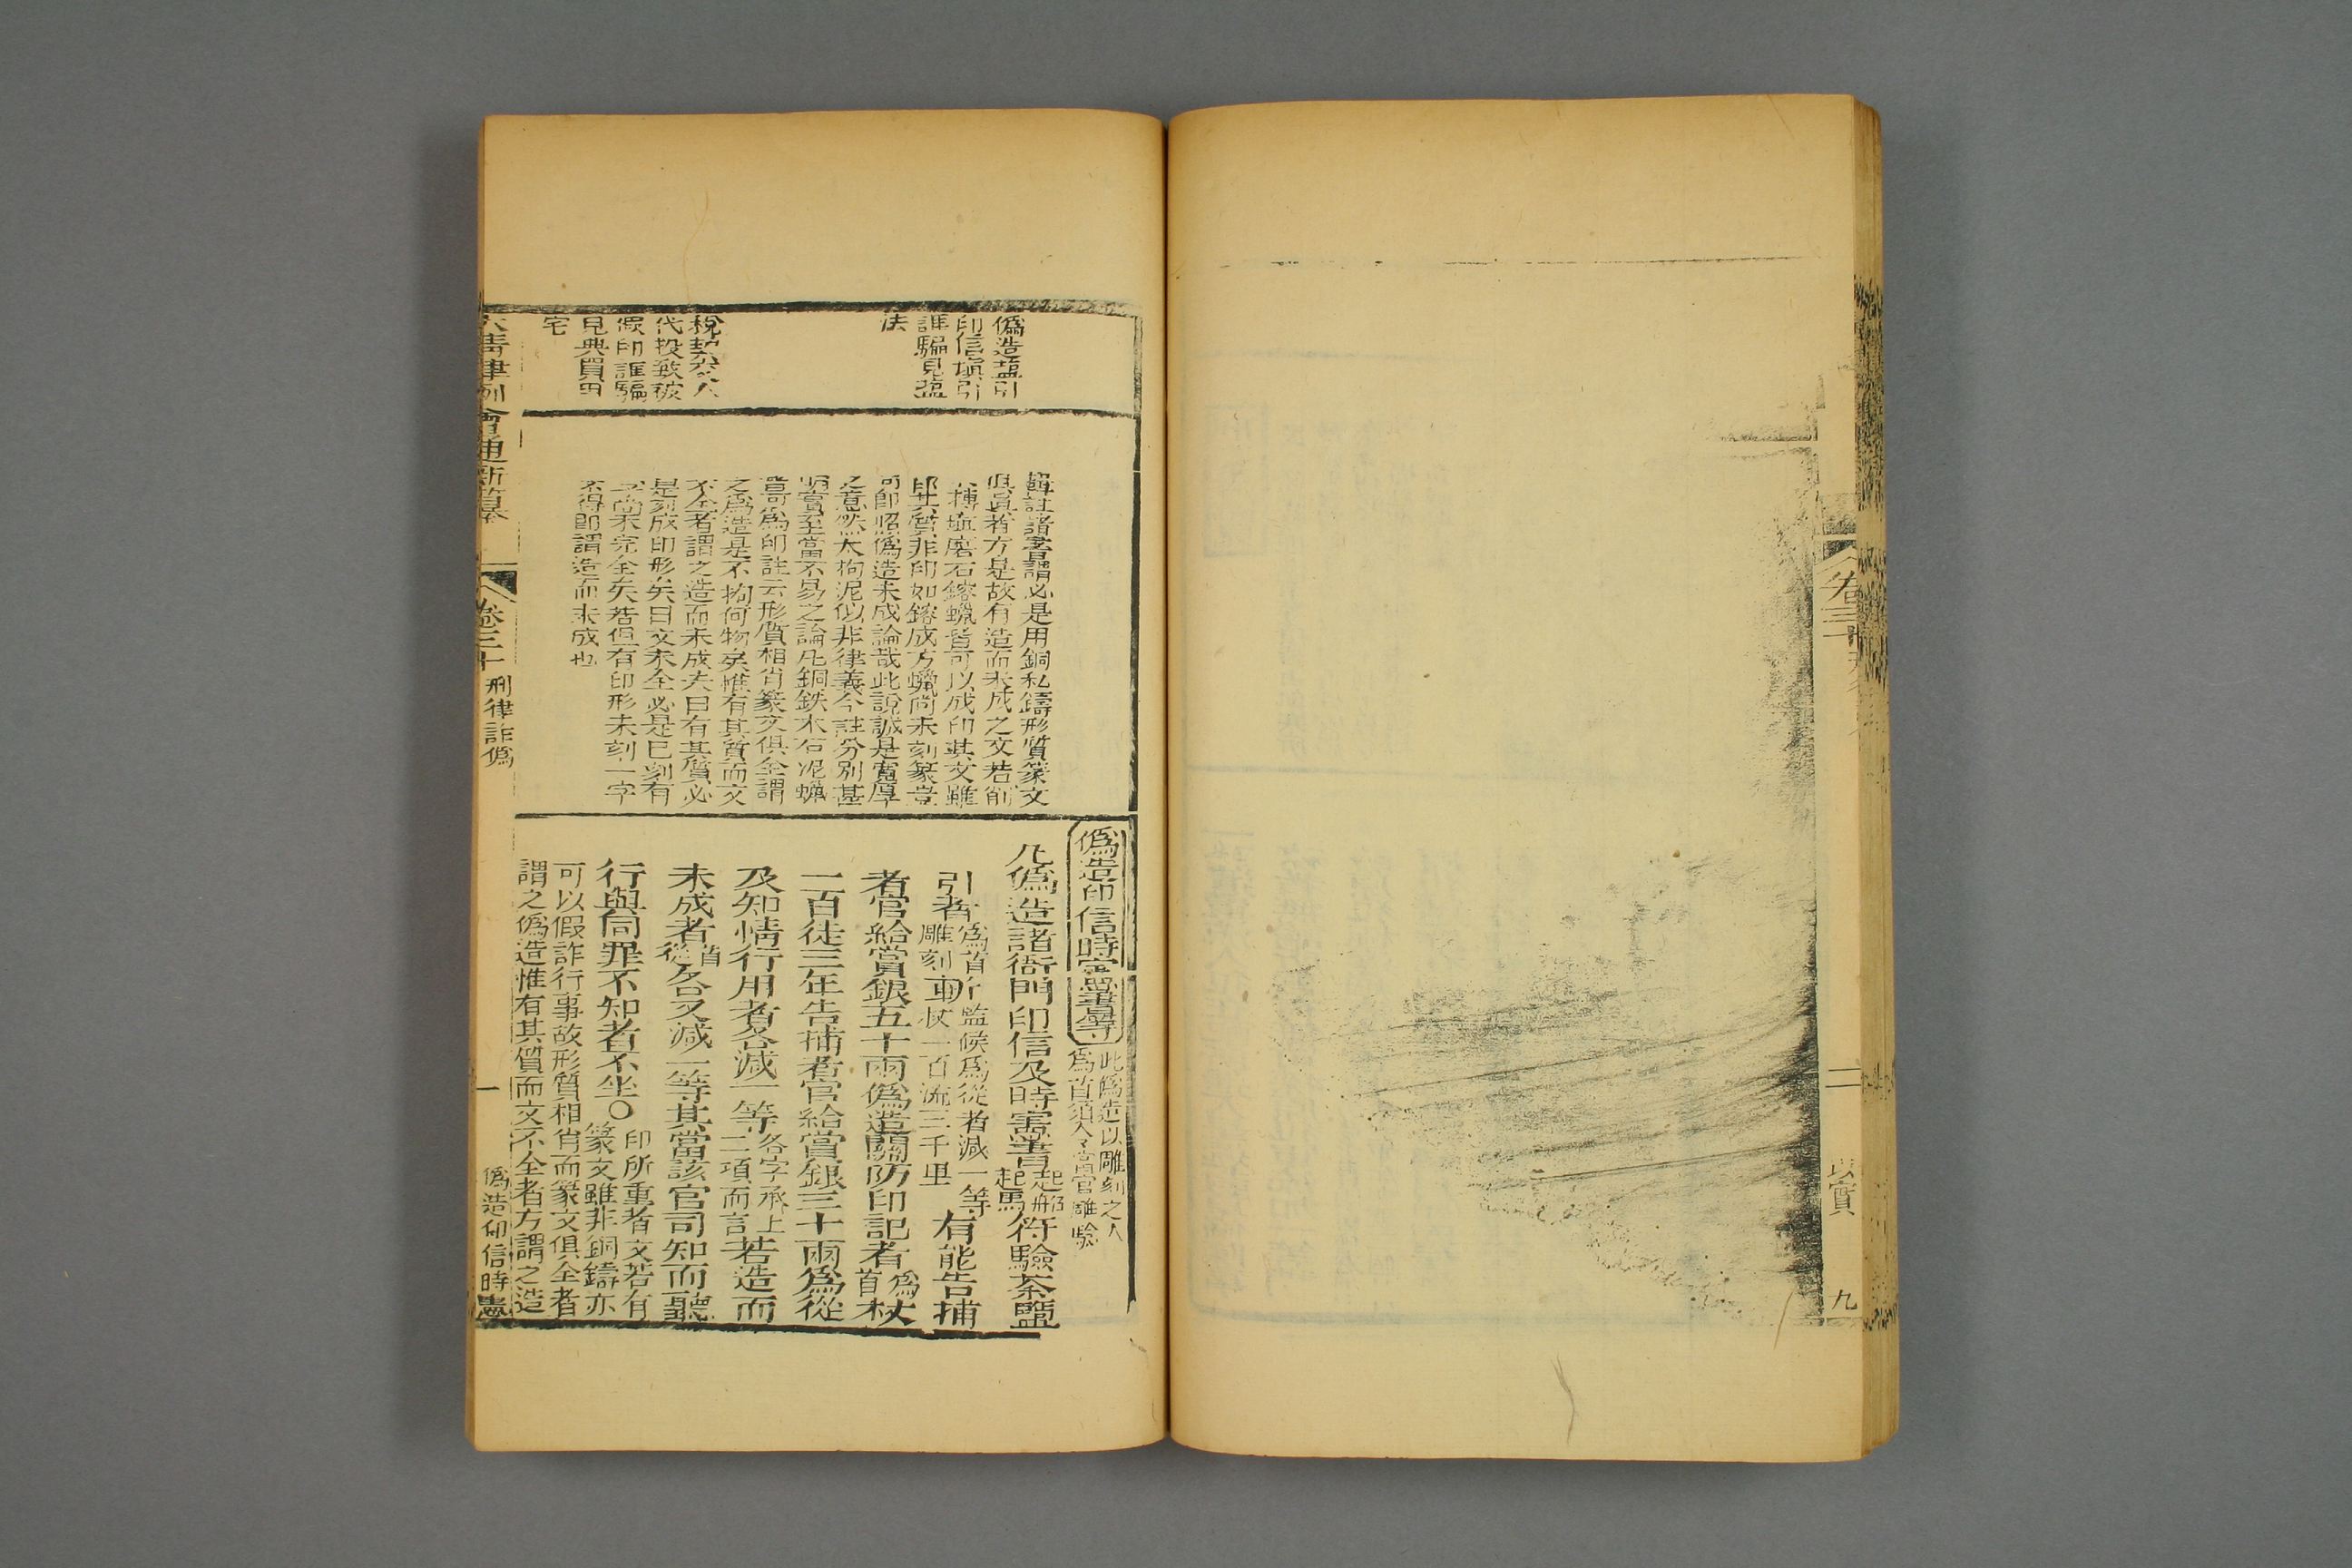 卷三十
二
九
偽造鹽引
印信填引
誆騙見鹽
法
稅契祭人
代投致被
假印誆騙
見典買田
宅
輯註諸書皆謂必是用銅私鑄形質篆文
俱眞者方是故有造而未成之文若削
木摶埴磨石鎔蠟皆可以成印其文雖
印其質非印如鎔成方蠟尚未刻篆豈
可卽照偽造未成論哉此說誠是寬厚
之意然太拘泥似非律義今註分別甚
明實至當不易之論凡銅鉄木石泥蠟
皆可爲印註云形質相肖篆文俱全謂
之爲造是不拘何物矣惟有其質而文
不全者謂之造而未成夫曰有其質必
是刻成印形矣曰文未全必是已刻有
字尚未完全矣若但有印形未刻一字
不得卽謂造而未成也
偽造印信時憲書等
此偽造以雕刻之人
爲首須令當官雕驗
凡偽造諸衙門印信及時憲書起船起馬符驗茶鹽
引者爲首雕刻斬監候爲從者減一等杖一百流三千里有能告捕
者官給賞銀五十兩偽造關防印記者爲首杖
一百徒三年告捕者官給賞銀三十兩爲從
及知情行用者各減一等各字承上二項而言若造而
未成者首從各又減一等其當該官司知而聽
行與同罪不知者不坐○印所重者文若有篆文雖非銅鑄亦
可以假詐行事故形質相肖而篆文俱全者
謂之偽造惟有其質而文不全者方謂之造
大清律例會通新纂 卷三十 刑律詐偽 一 偽造印信時憲